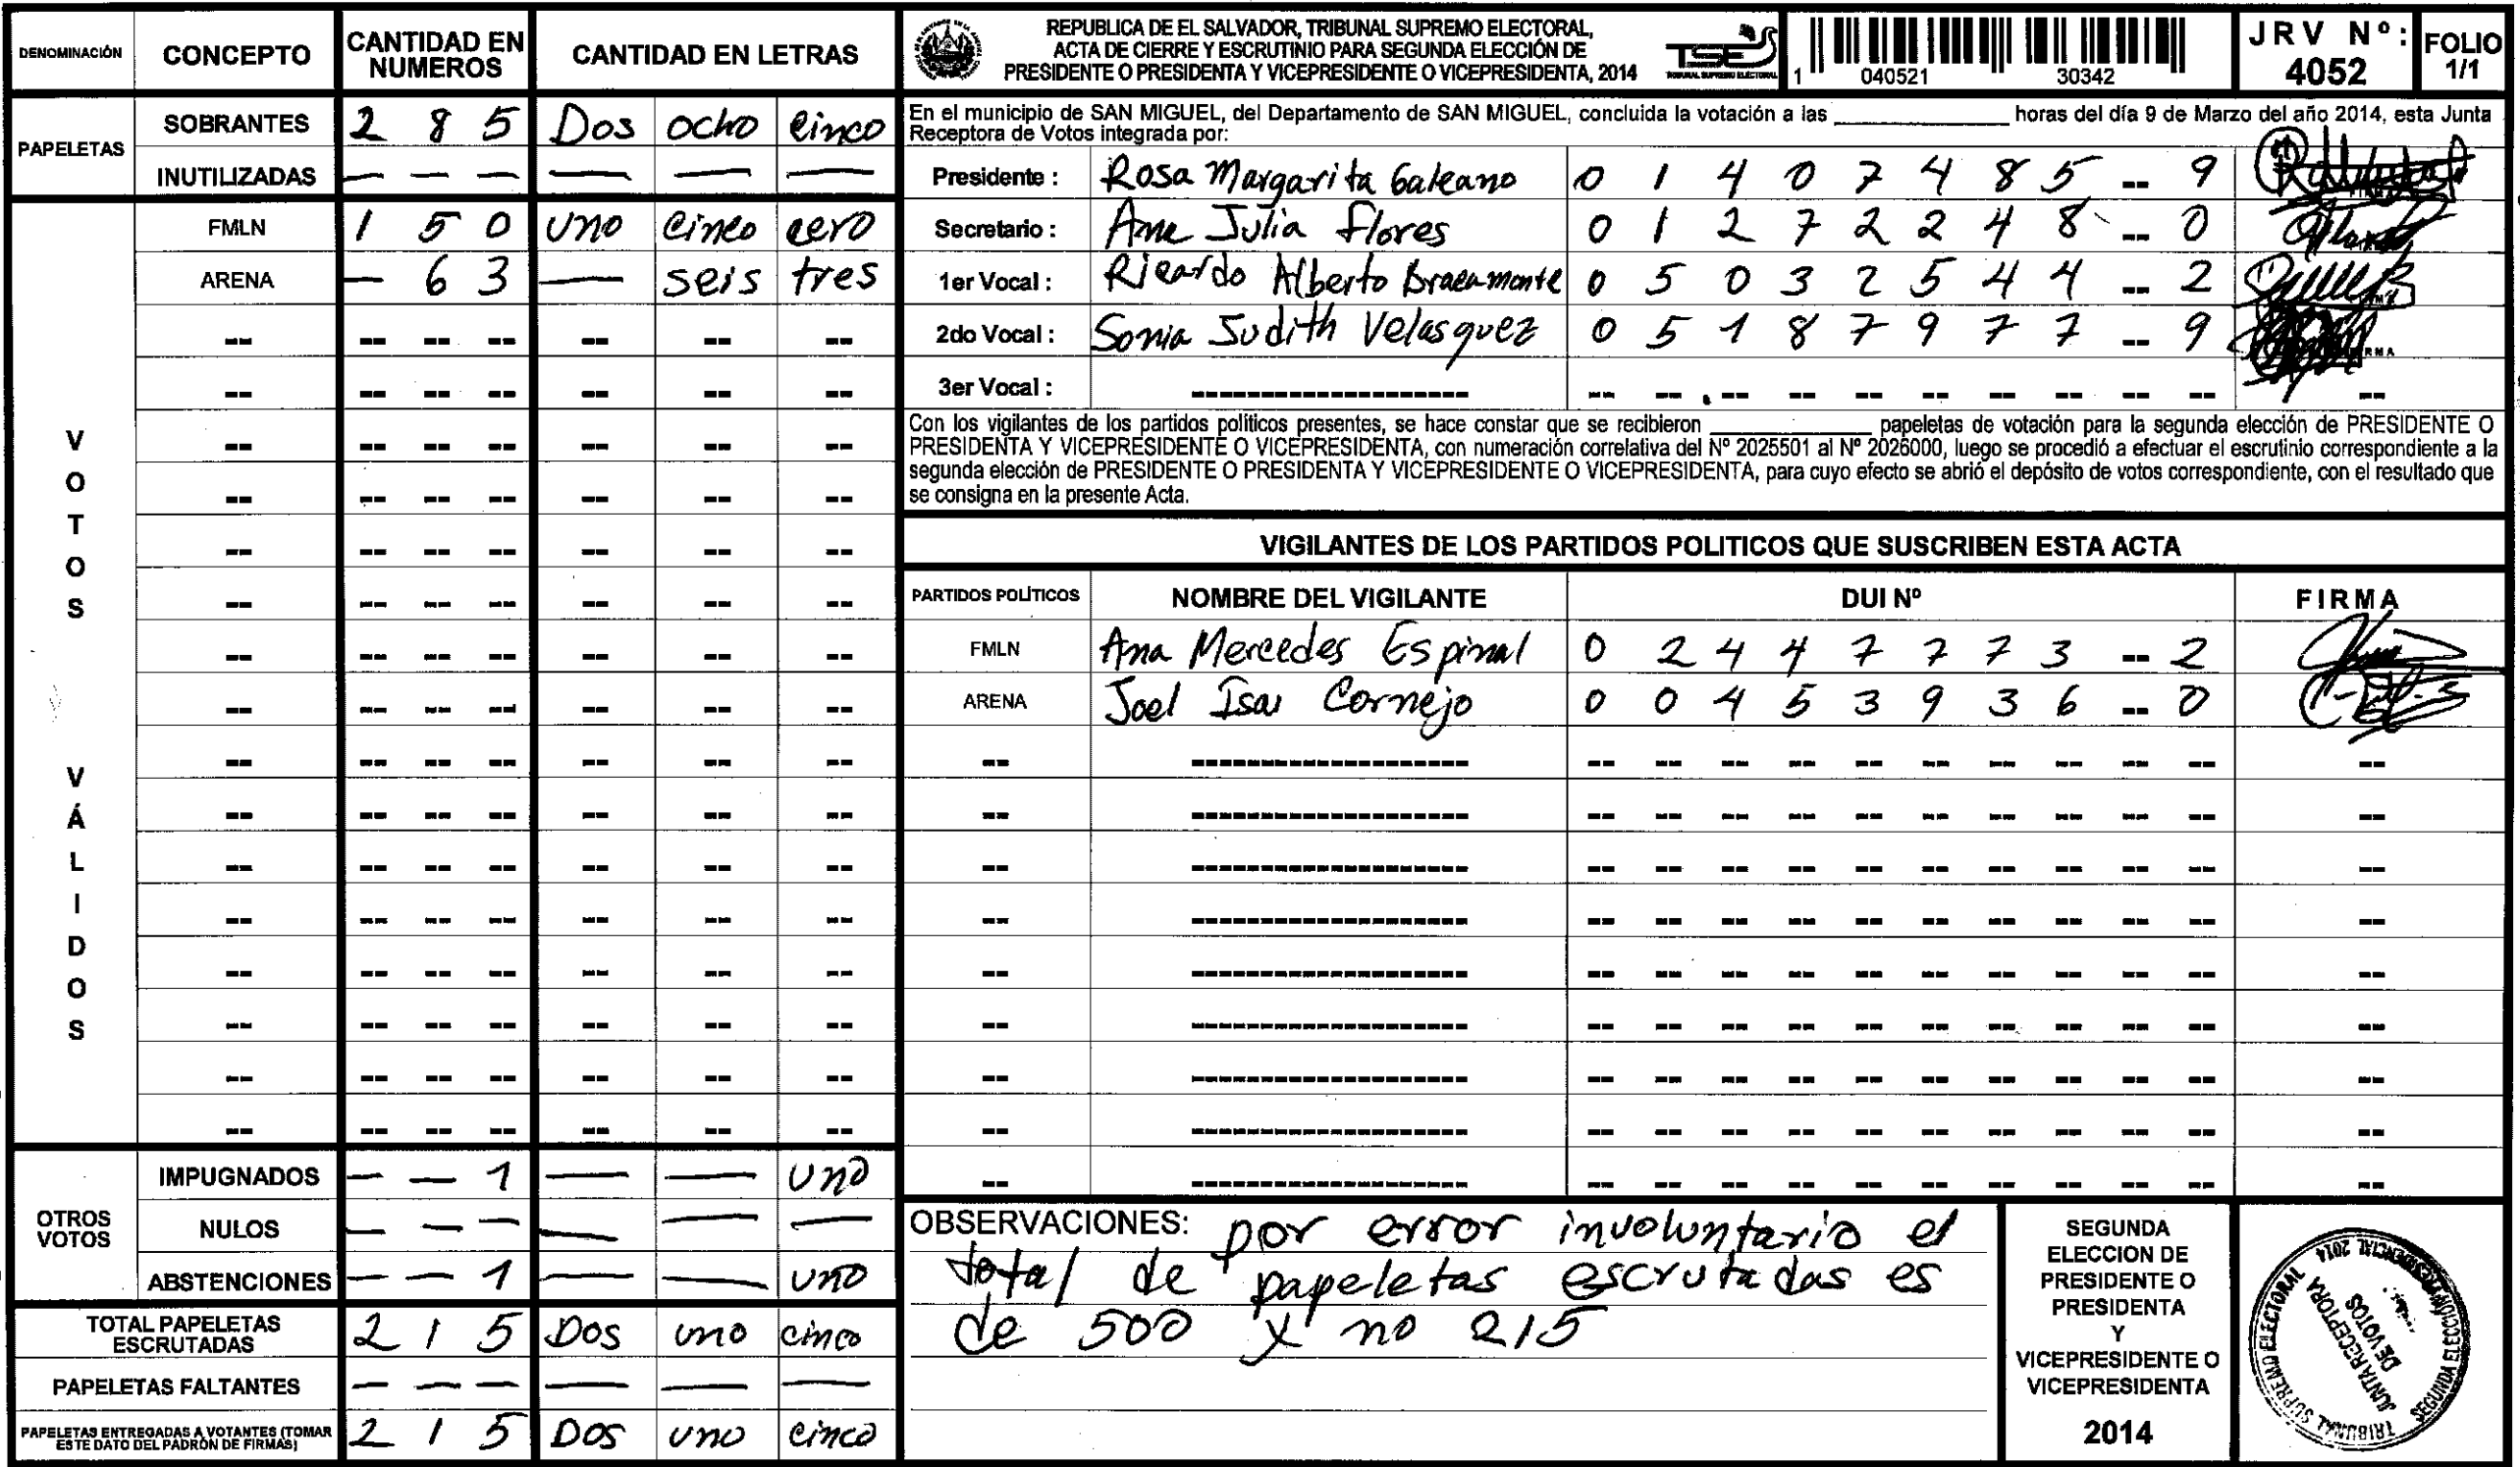 DENOMINACIÓN CONCEPTO CANTIDAD EN NUMEROS CANTIDAD EN LETRAS
PAPELETAS
SOBRANTES 2 8 5 Dos ocho cinco
INUTILIZADAS — — — — — —
VOTOS VÁLIDOS
FMLN 1 5 0 uno cinco cero
ARENA — 6 3 — seis tres
-- -- -- -- -- -- --
-- -- -- -- -- -- --
-- -- -- -- -- -- --
-- -- -- -- -- -- --
-- -- -- -- -- -- --
-- -- -- -- -- -- --
-- -- -- -- -- -- --
-- -- -- -- -- -- --
-- -- -- -- -- -- --
-- -- -- -- -- -- --
-- -- -- -- -- -- --
-- -- -- -- -- -- --
-- -- -- -- -- -- --
-- -- -- -- -- -- --
-- -- -- -- -- -- --
-- -- -- -- -- -- --
OTROS VOTOS
IMPUGNADOS — — 1 — — uno
NULOS — — — — — —
ABSTENCIONES — — 1 — — uno
TOTAL PAPELETAS ESCRUTADAS 2 1 5 Dos uno cinco
PAPELETAS FALTANTES — — — — — —
PAPELETAS ENTREGADAS A VOTANTES (TOMAR ESTE DATO DEL PADRÓN DE FIRMAS) 2 1 5 Dos uno cinco
REPUBLICA DE EL SALVADOR, TRIBUNAL SUPREMO ELECTORAL,
ACTA DE CIERRE Y ESCRUTINIO PARA SEGUNDA ELECCIÓN DE
PRESIDENTE O PRESIDENTA Y VICEPRESIDENTE O VICEPRESIDENTA, 2014
TSE
TRIBUNAL SUPREMO ELECTORAL
1 040521 30342
JRV Nº: 4052
FOLIO 1/1
En el municipio de SAN MIGUEL, del Departamento de SAN MIGUEL, concluida la votación a las ____________ horas del día 9 de Marzo del año 2014, esta Junta
Receptora de Votos integrada por:
Presidente : Rosa Margarita Galeano 0 1 4 0 7 4 8 5 -- 9
Secretario : Ana Julia Flores 0 1 2 7 2 2 4 8 -- 0
1er Vocal : Ricardo Alberto Bracamonte 0 5 0 3 2 5 4 4 -- 2
2do Vocal : Sonia Judith Velasquez 0 5 1 8 7 9 7 7 -- 9
3er Vocal : ------------------ -- -- -- -- -- -- -- -- -- -- --
Con los vigilantes de los partidos políticos presentes, se hace constar que se recibieron ____________ papeletas de votación para la segunda elección de PRESIDENTE O
PRESIDENTA Y VICEPRESIDENTE O VICEPRESIDENTA, con numeración correlativa del Nº 2025501 al Nº 2026000, luego se procedió a efectuar el escrutinio correspondiente a la
segunda elección de PRESIDENTE O PRESIDENTA Y VICEPRESIDENTE O VICEPRESIDENTA, para cuyo efecto se abrió el depósito de votos correspondiente, con el resultado que
se consigna en la presente Acta.
VIGILANTES DE LOS PARTIDOS POLITICOS QUE SUSCRIBEN ESTA ACTA
PARTIDOS POLÍTICOS NOMBRE DEL VIGILANTE DUI Nº FIRMA
FMLN Ana Mercedes Espinal 0 2 4 4 7 7 7 3 -- 2
ARENA Joel Isai Cornejo 0 0 4 5 3 9 3 6 -- 0
-- ------------------ -- -- -- -- -- -- -- -- -- -- --
-- ------------------ -- -- -- -- -- -- -- -- -- -- --
-- ------------------ -- -- -- -- -- -- -- -- -- -- --
-- ------------------ -- -- -- -- -- -- -- -- -- -- --
-- ------------------ -- -- -- -- -- -- -- -- -- -- --
-- ------------------ -- -- -- -- -- -- -- -- -- -- --
-- ------------------ -- -- -- -- -- -- -- -- -- -- --
-- ------------------ -- -- -- -- -- -- -- -- -- -- --
-- ------------------ -- -- -- -- -- -- -- -- -- -- --
OBSERVACIONES: por error involuntario el
total de papeletas escrutadas es
de 500 y no 215
SEGUNDA
ELECCION DE
PRESIDENTE O
PRESIDENTA
Y
VICEPRESIDENTE O
VICEPRESIDENTA
2014
TRIBUNAL SUPREMO ELECTORAL
SEGUNDA ELECCION PRESIDENCIAL 2014
JUNTA RECEPTORA
DE VOTOS